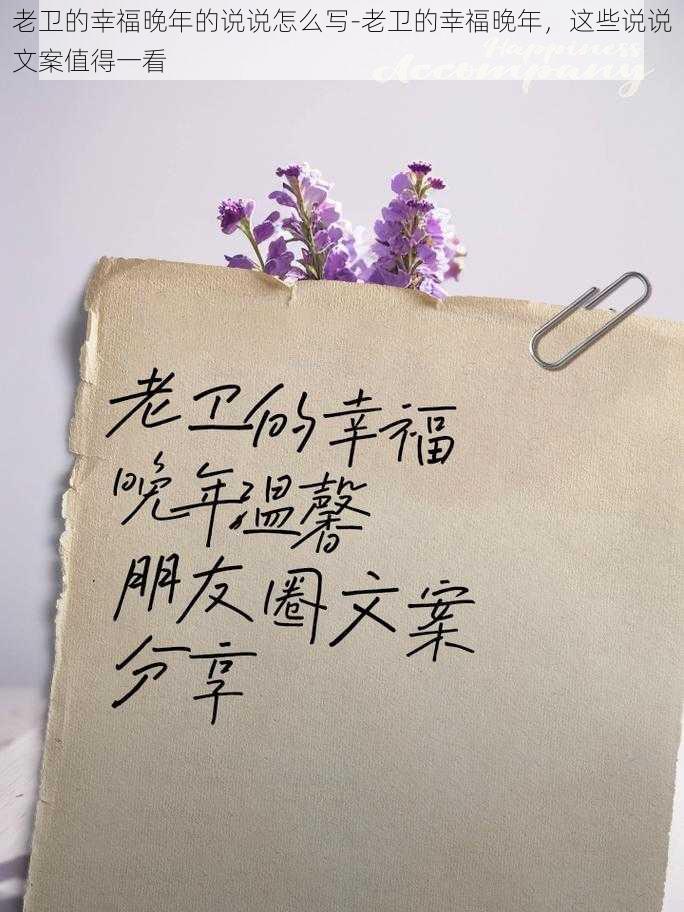 老卫的幸福晚年的说说怎么写-老卫的幸福晚年，这些说说
文案值得一看
Happiness
Accompany
老卫的幸福
晚年温馨
朋友圈文案
分享